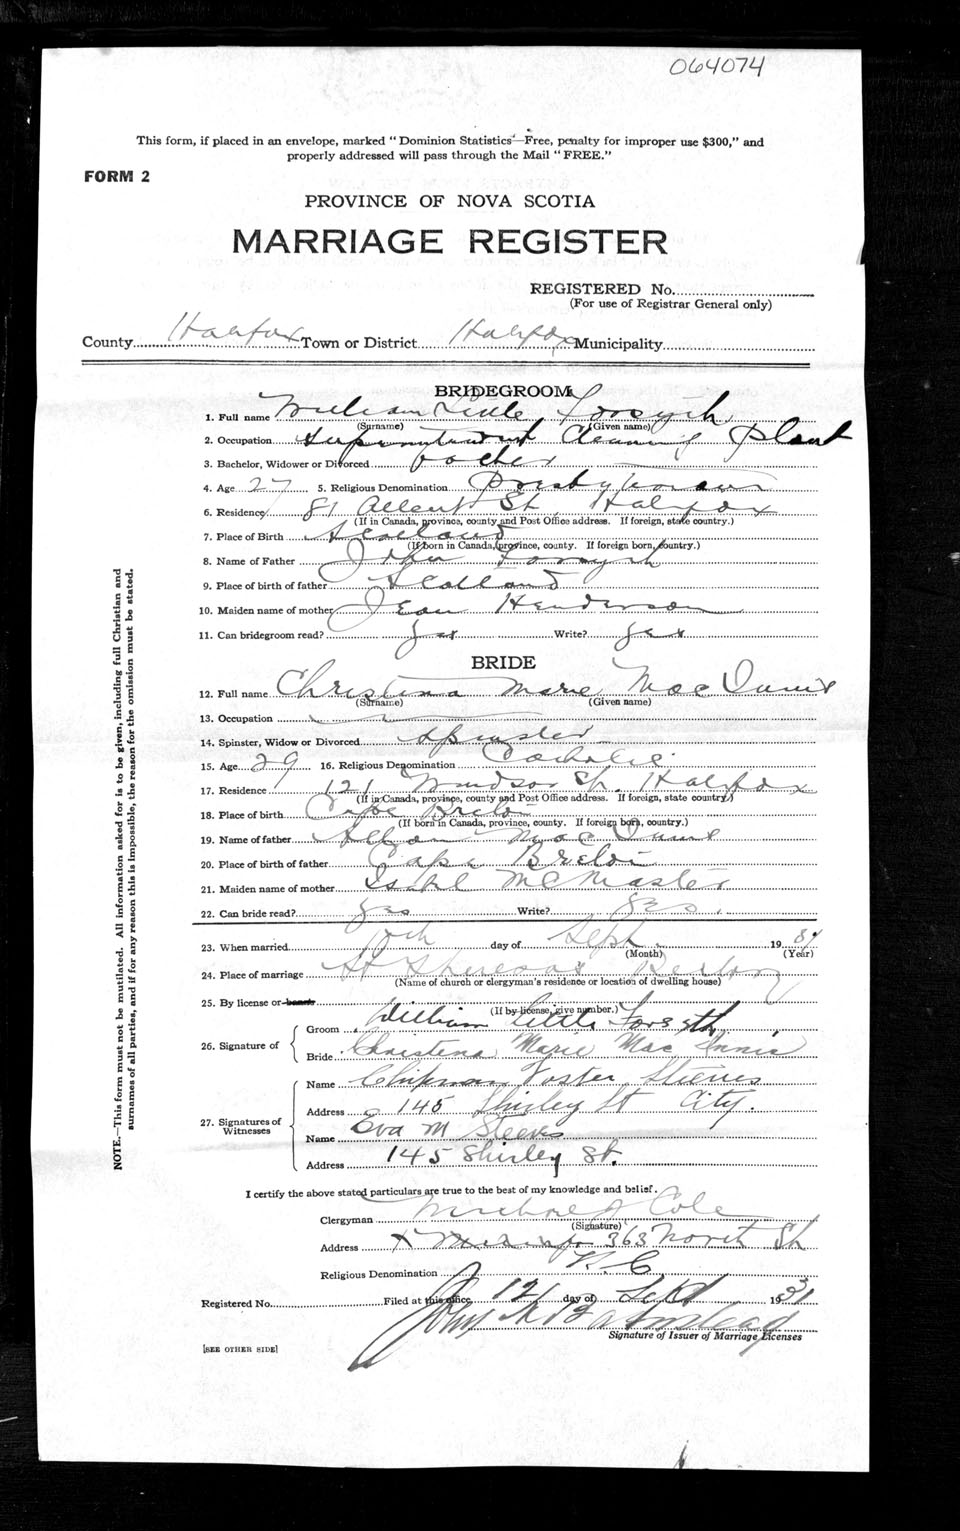 064074
This form, if placed in an envelope, marked "Dominion Statistics—Free, penalty for improper use $300," and
properly addressed will pass through the Mail "FREE."
FORM 2
PROVINCE OF NOVA SCOTIA
MARRIAGE REGISTER
REGISTERED No.
(For use of Registrar General only)
County Halifax Town or District Halifax Municipality
BRIDEGROOM
1. Full name William Little Forsyth
(Surname) (Given name)
2. Occupation Superintendent Cleaning Plant
3. Bachelor, Widower or Divorced
4. Age 27 5. Religious Denomination Presbyterian
6. Residence 81 Allen St. Halifax
(If in Canada, province, county and Post Office address. If foreign, state country.)
7. Place of Birth Scotland
(If born in Canada, province, county. If foreign born, country.)
8. Name of Father John Forsyth
9. Place of birth of father Scotland
10. Maiden name of mother Jean Henderson
11. Can bridegroom read? yes Write? yes
BRIDE
12. Full name Christina Marie MacInnis
(Surname) (Given name)
13. Occupation
14. Spinster, Widow or Divorced Spinster
15. Age 29 16. Religious Denomination Catholic
17. Residence 121 Windsor St. Halifax
(If in Canada, province, county and Post Office address. If foreign, state country)
18. Place of birth Cape Breton
(If born in Canada, province, county. If foreign born, country.)
19. Name of father MacInnis
20. Place of birth of father Cape Breton
21. Maiden name of mother Isabel McMaster
22. Can bride read? yes Write? yes.
23. When married 10th day of Sept. 19
(Month) (Year)
24. Place of marriage St Theresas Rectory
(Name of church or clergyman's residence or location of dwelling house)
25. By license or banns
(If by license, give number.)
26. Signature of
Groom William Little Forsyth
Bride Christena Marie MacInnis
27. Signatures of Witnesses
Name Chipman Foster Steeves
Address 145 Shirley St City.
Name Eva M Steeves
Address 145 Shirley St.
I certify the above stated particulars are true to the best of my knowledge and belief.
Clergyman Cole
(Signature)
Address 363 North St
Religious Denomination R.C.
Registered No. Filed at this office 12 day of Sept 1931
Signature of Issuer of Marriage Licenses
[SEE OTHER SIDE]
NOTE.—This form must not be mutilated. All information asked for is to be given, including full Christian and
surnames of all parties, and if for any reason this is impossible, the reason for the omission must be stated.